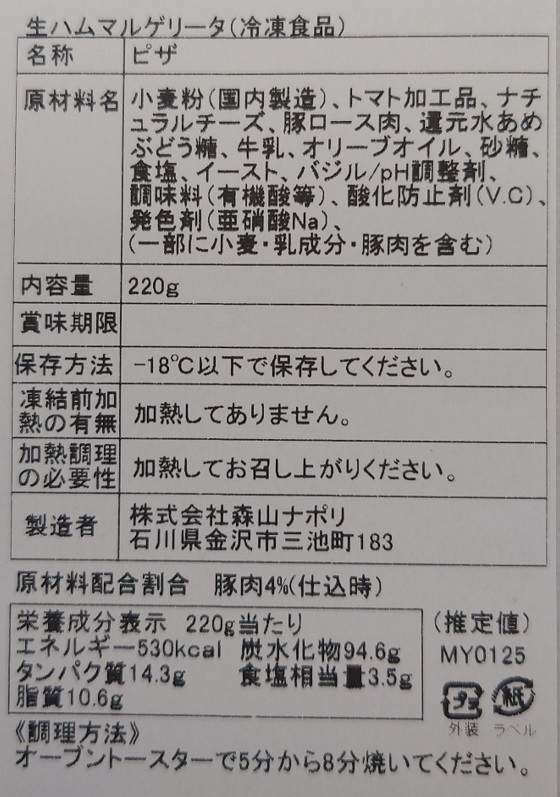 生ハムマルゲリータ(冷凍食品)
名称 ピザ
原材料名 小麦粉(国内製造)、トマト加工品、ナチ
ュラルチーズ、豚ロース肉、還元水あめ
ぶどう糖、牛乳、オリーブオイル、砂糖、
食塩、イースト、バジル/pH調整剤、
調味料(有機酸等)、酸化防止剤(V.C)、
発色剤(亜硝酸Na)、
(一部に小麦・乳成分・豚肉を含む)
内容量 220g
賞味期限
保存方法 -18℃以下で保存してください。
凍結前加
熱の有無 加熱してありません。
加熱調理
の必要性 加熱してお召し上がりください。
製造者 株式会社森山ナポリ
石川県金沢市三池町183
原材料配合割合 豚肉4%(仕込時)
栄養成分表示 220g当たり (推定値)
エネルギー530kcal 炭水化物94.6g
タンパク質14.3g 食塩相当量3.5g
脂質10.6g
MY0125
プラ 紙
外装 ラベル
《調理方法》
オーブントースターで5分から8分焼いてください。